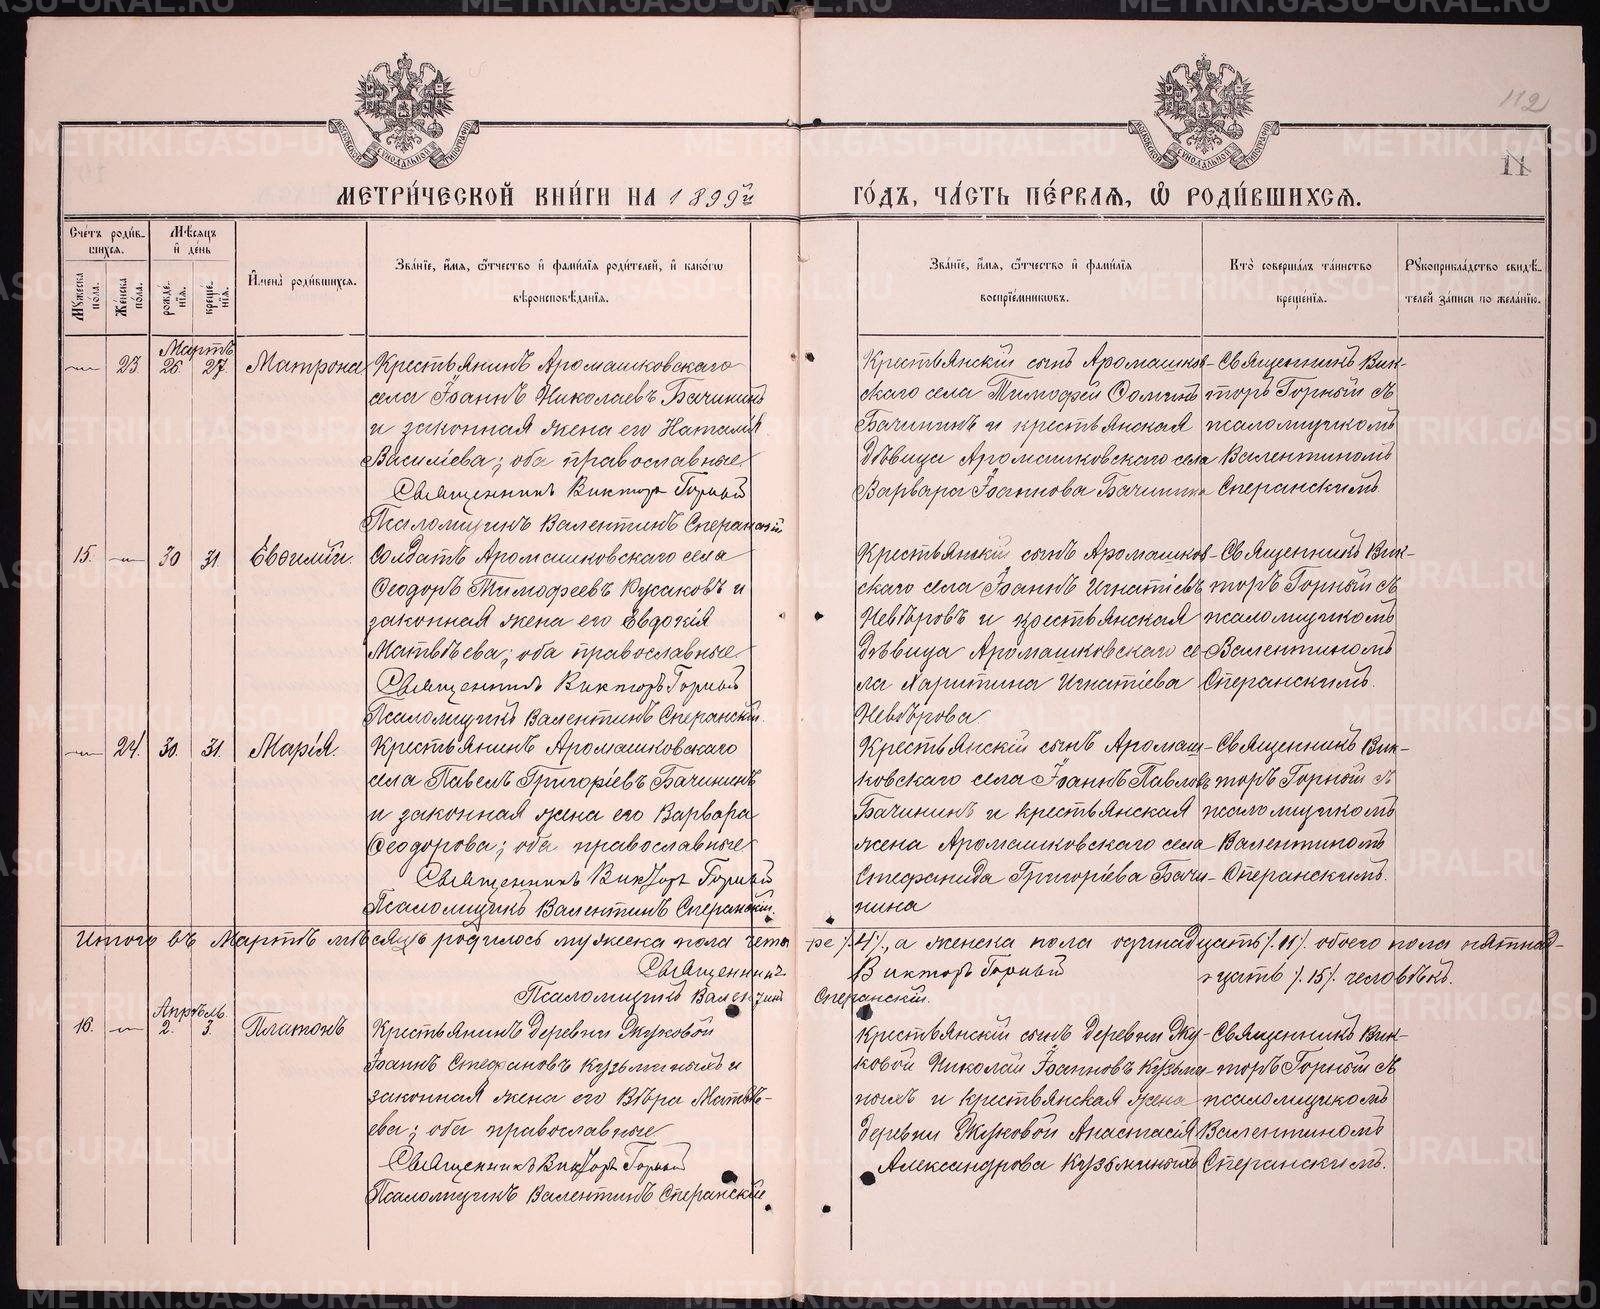 112
11
МЕТРИ́ЧЕСКОЙ КНИ́ГИ НА 1899й
ГО́ДЪ, ЧА́СТЬ ПЕ́РВАЯ, Ѡ҆ РОДИ́ВШИХСЯ.
Сче́тъ роди́в-
шихся.
Мꙋжеска по́ла.
Же́нска по́ла.
Мѣ́сяцъ и҆ де́нь
рожде́-нїя.
креще́-нїя.
И҆мена̀ роди́вшихся.
Зва́нїе, и҆́мя, ѻ҆́тчество и҆ фами́лїя роди́телей, и҆ како́гѡ
вѣроисповѣ́данїя.
Зва́нїе, и҆́мя, ѻ҆́тчество и҆ фами́лїя
воспрїе́мниковъ.
Кто̀ соверша́лъ та́инство
креще́нїя.
Рꙋкоприкла́дство свидѣ́-
телей за́писи по жела́нїю.
Мартъ
23 26 27 Матрона
Крестьянинъ Аромашковскаго
села Іоаннъ Николаевъ Бачининъ
и законная жена его Наталія
Василіева; оба православные
Священникъ Викторъ Горный
Псаломщикъ Валентинъ Сперанскій
Крестьянскій сынъ Аромашков-
скаго села Тимофей Ѳоминъ
Бачининъ и крестьянская
дѣвица Аромашковскаго села
Варвара Іоаннова Бачинина
Священникъ Вик-
торъ Горный съ
псаломщикомъ
Валентиномъ
Сперанскимъ.
15. 30 31. Евѳимій.
Солдатъ Аромашковскаго села
Ѳеодоръ Тимофеевъ Русаковъ и
законная жена его Евдокія
Матвѣева; оба православные
Священникъ Викторъ Горный
Псаломщикъ Валентинъ Сперанскій.
Крестьянскій сынъ Аромашков-
скаго села Іоаннъ Игнатіевъ
Невѣровъ и крестьянская
дѣвица Аромашковскаго се-
ла Харитина Игнатіева
Невѣрова
Священникъ Вик-
торъ Горный съ
псаломщикомъ
Валентиномъ
Сперанскимъ.
24. 30. 31. Марія.
Крестьянинъ Аромашковскаго
села Павелъ Григоріевъ Бачининъ
и законная жена его Варвара
Ѳеодорова; оба православные
Священникъ Викторъ Горный
Псаломщикъ Валентинъ Сперанскій.
Крестьянскій сынъ Аромаш-
ковскаго села Іоаннъ Павловъ
Бачининъ и крестьянская
жена Аромашковскаго села
Стефанида Григоріева Бачи-
нина
Священникъ Вик-
торъ Горный съ
псаломщикомъ
Валентиномъ
Сперанскимъ.
Итого въ Мартѣ мѣсяцѣ родилось мужеска пола четы ре /.4/., а женска пола одинадцать /.11/. обоего пола пятнад-
цать /.15/. человѣкъ.
Священникъ Викторъ Горный
Псаломщикъ Валентинъ Сперанскій.
Апрѣль
16. 2. 3. Платонъ
Крестьянинъ деревни Жуковой
Іоаннъ Стефановъ Кузьминыхъ и
законная жена его Вѣра Матвѣ-
ева; оба православные
Священникъ Викторъ Горный
Псаломщикъ Валентинъ Сперанскій
Крестьянскій сынъ деревни Жу-
ковой Николай Іоанновъ Кузьми-
ныхъ и крестьянская жена
деревни Жуковой Анастасія
Александрова Кузьминыхъ
Священникъ Вик-
торъ Горный съ
псаломщикомъ
Валентиномъ
Сперанскимъ.
METRIKI.GASO-URAL.RU